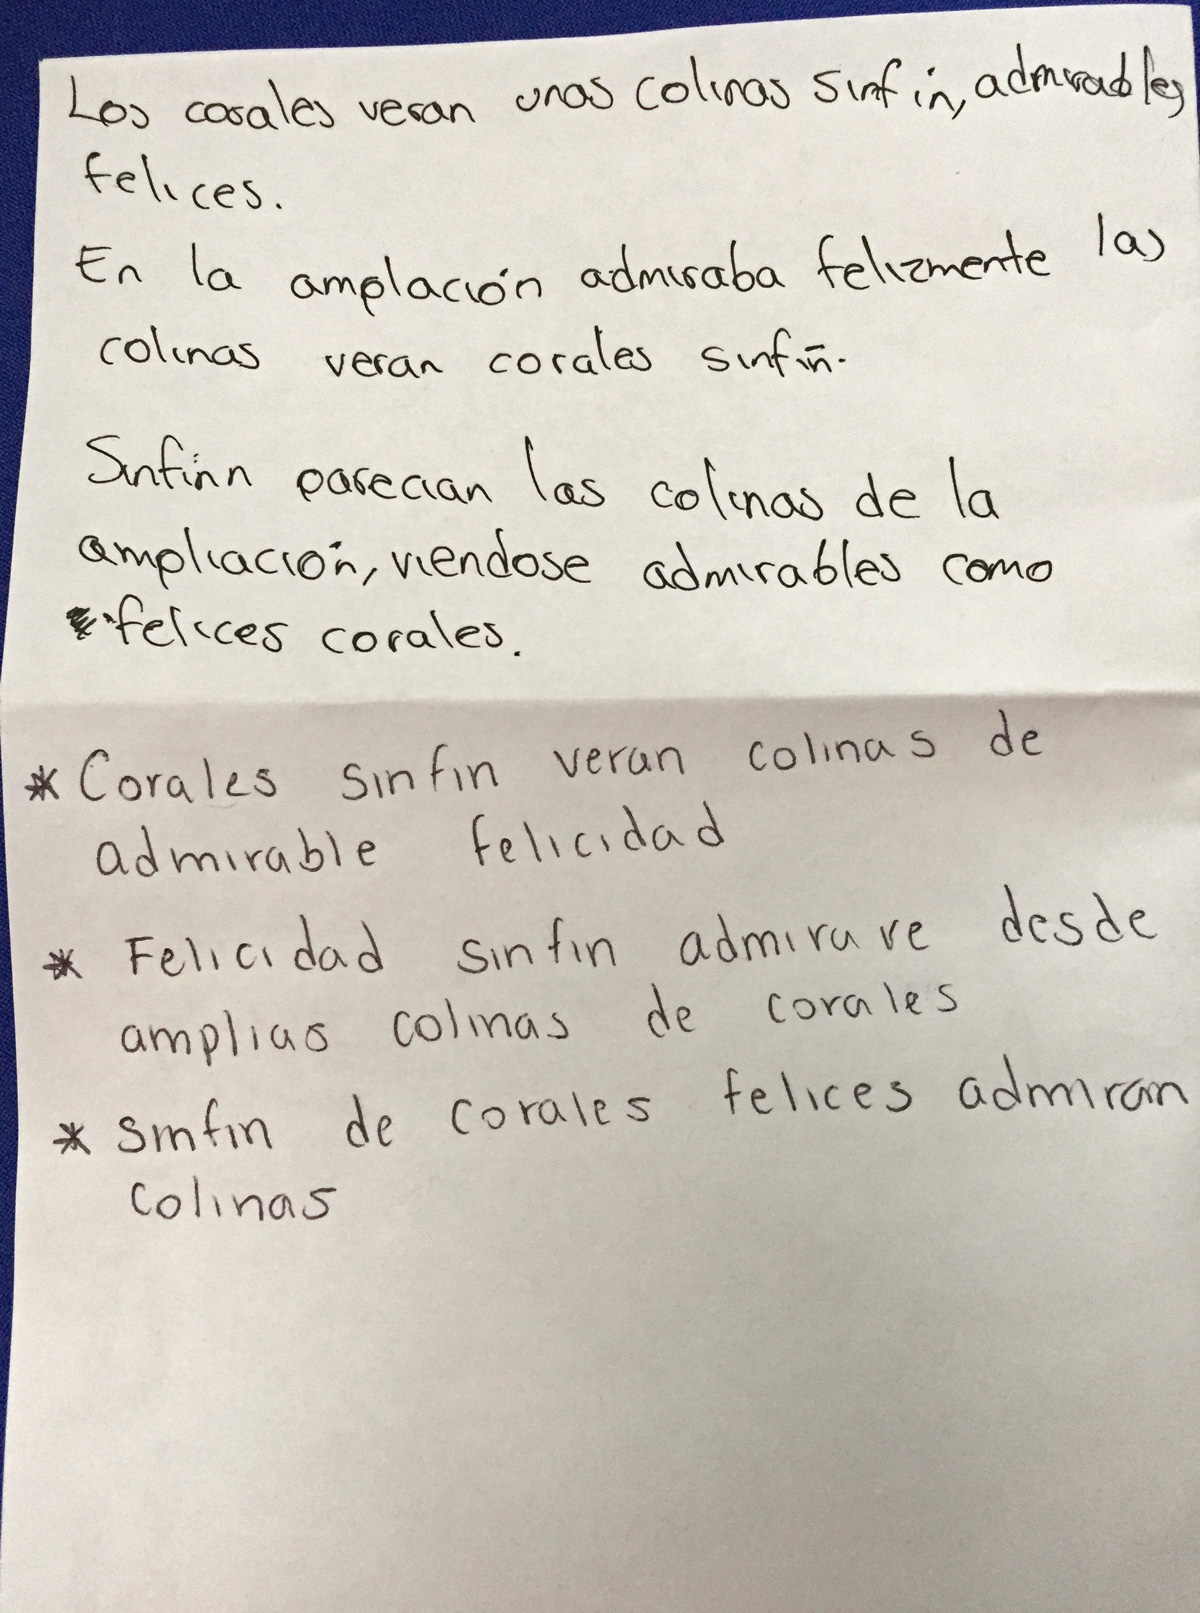 Los corales veran unas colinas sinfin, admirables
felices.
En la amplación admiraba felizmente las
colinas veran corales sinfin.
Sinfinn parecian las colinas de la
ampliación, viendose admirables como
felices corales.
* Corales sinfin veran colinas de
admirable felicidad
* Felicidad sinfin admirare desde
amplias colinas de corales
* Sinfin de corales felices admiran
colinas